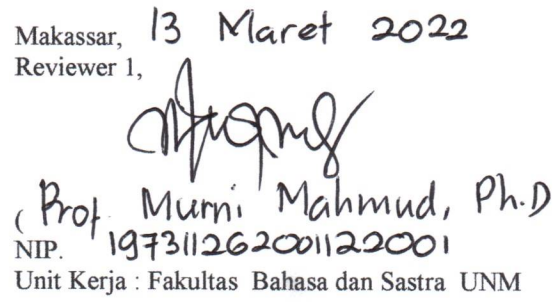 Makassar, 13 Maret 2022
Reviewer 1,
( Prof. Murni Mahmud, Ph.D
NIP. 197311262001122001
Unit Kerja : Fakultas Bahasa dan Sastra UNM